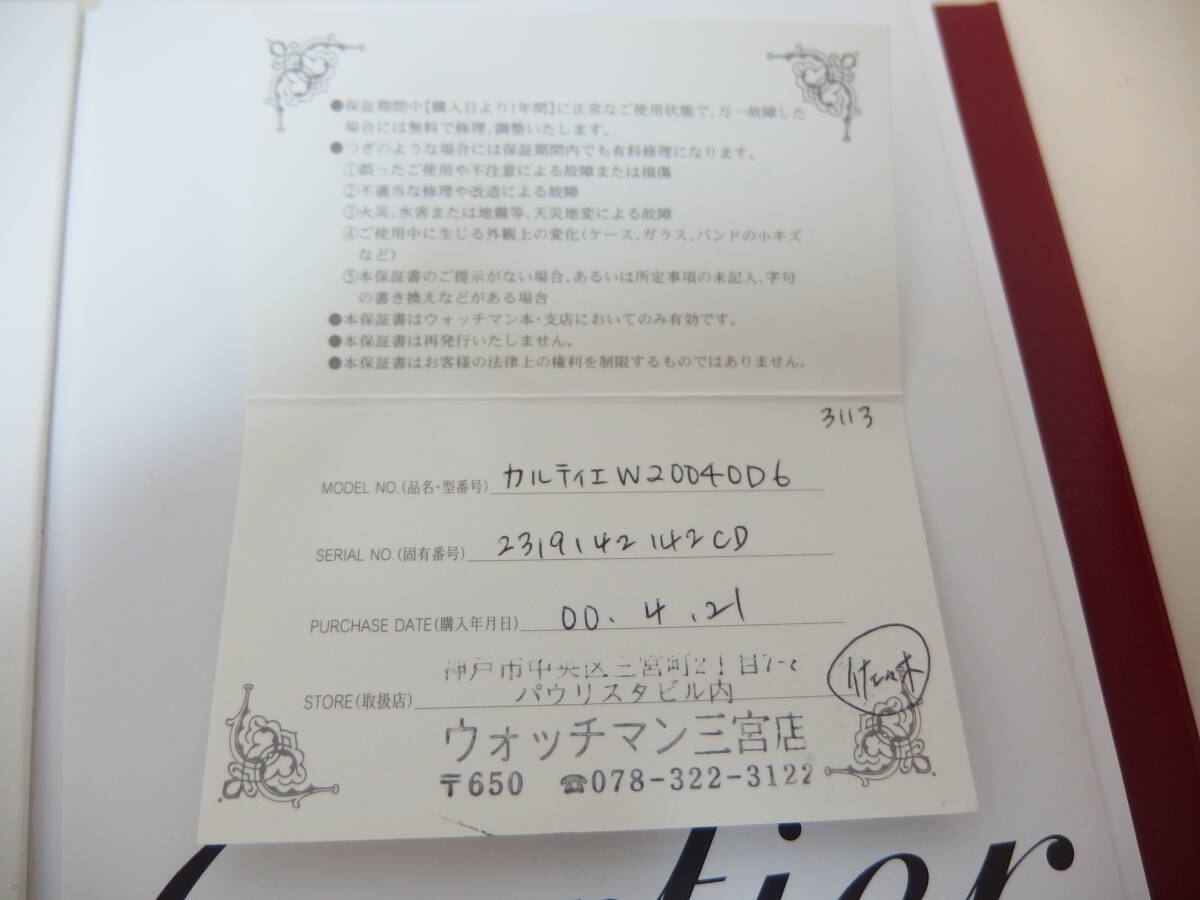 ●保証期間中【購入日より1年間】に正常なご使用状態で、万一故障した
場合には無料で修理、調整いたします。
●つぎのような場合には保証期間内でも有料修理になります。
①誤ったご使用や不注意による故障または損傷
②不適当な修理や改造による故障
③火災、水害または地震等、天災地変による故障
④ご使用中に生じる外観上の変化(ケース、ガラス、バンドの小キズ
など)
⑤本保証書のご提示がない場合、あるいは所定事項の未記入、字句
の書き換えなどがある場合
●本保証書はウォッチマン本・支店においてのみ有効です。
●本保証書は再発行いたしません。
●本保証書はお客様の法律上の権利を制限するものではありません。
3113
MODEL NO.(品名・型番号) カルティエ W20040D6
SERIAL NO.(固有番号) 2319142142CD
PURCHASE DATE(購入年月日) 00.4.21
神戸市中央区三宮町2丁目7-
STORE(取扱店) パウリスタビル内 佐々木
ウォッチマン三宮店
〒650 ☎078-322-3122
Cartier